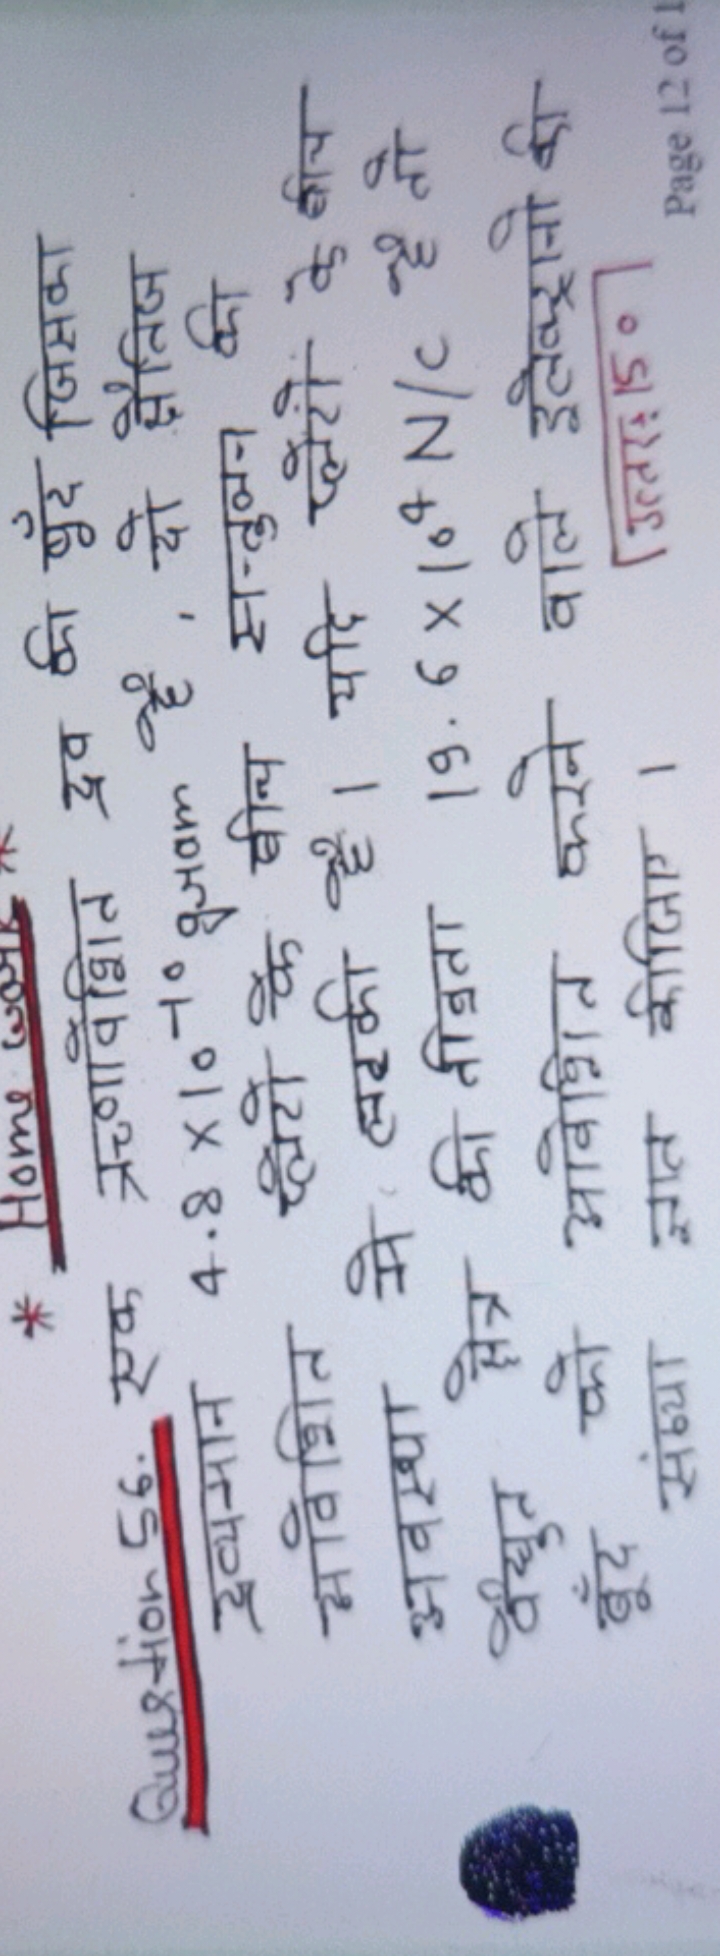 * Home work *
Question 59. एक ऋणावेशित द्रव की बुँद जिसका
द्रव्यमान 4.8 × 10⁻¹⁰ gmam है, दो क्षैतिज
आवेशित प्लेटो के बीच सन्तुलन की
अवस्था मे लटकी है। यदि प्लेटो के बीच
वैद्युत क्षेत्र की तीव्रता 19.6 × 10⁴ N/C है तो
बूँद को आवेशित करने वाले इलेक्ट्रानो की
संख्या ज्ञात कीजिए।
Page 12 of 1